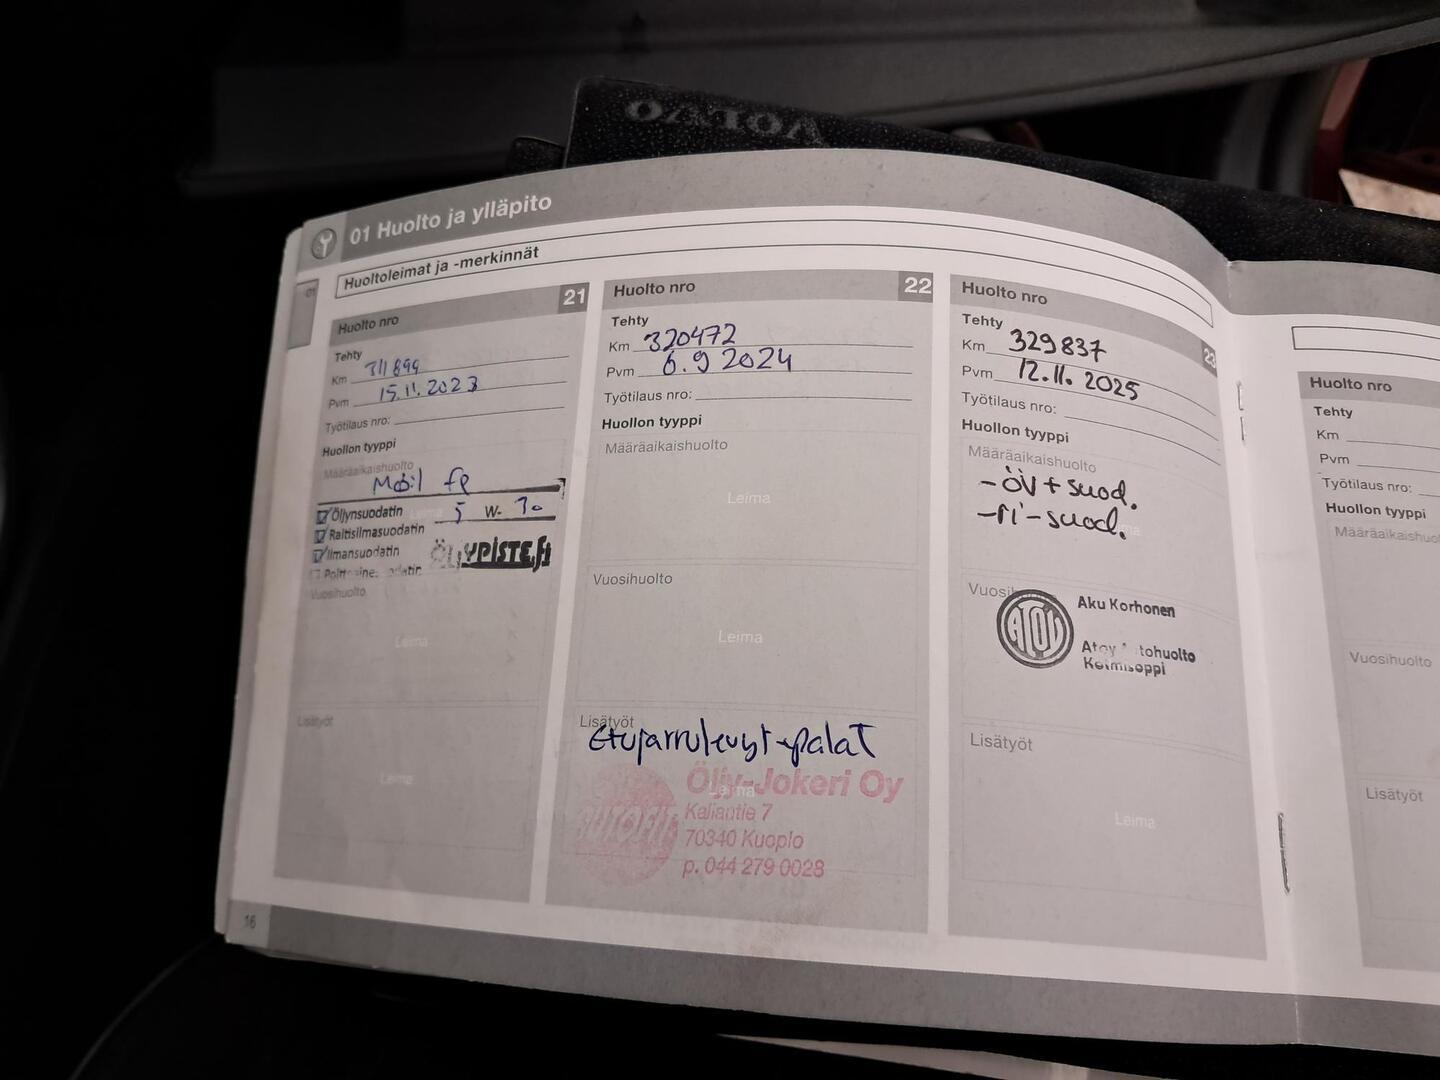 VOLVO
01 Huolto ja ylläpito
Huoltoleimat ja -merkinnät
01
Huolto nro 21
Tehty
Km 311899
Pvm 15.11.2023
Työtilaus nro:
Huollon tyyppi
Määräaikaishuolto
Mobil
Öljynsuodatin 5 W- 30
Raitisilmasuodatin
Ilmansuodatin
ÖLJYPISTE.fi
Vuosihuolto
Leima
Lisätyöt
Leima
Huolto nro 22
Tehty
Km 320472
Pvm 6.9 2024
Työtilaus nro:
Huollon tyyppi
Määräaikaishuolto
Leima
Vuosihuolto
Leima
Lisätyöt
Etujarrulevyt + palat
Leima
AUTOFIT
Öljy-Jokeri Oy
Kallantie 7
70340 Kuopio
p. 044 279 0028
Huolto nro 23
Tehty
Km 329837
Pvm 12.11. 2025
Työtilaus nro:
Huollon tyyppi
Määräaikaishuolto
-öv + suod.
-ri-suod.
ATOY
Aku Korhonen
Atoy Autohuolto
Kelmisoppi
Lisätyöt
Leima
Huolto nro
Tehty
Km
Pvm
Työtilaus nro:
Huollon tyyppi
Vuosihuolto
Lisätyöt
16